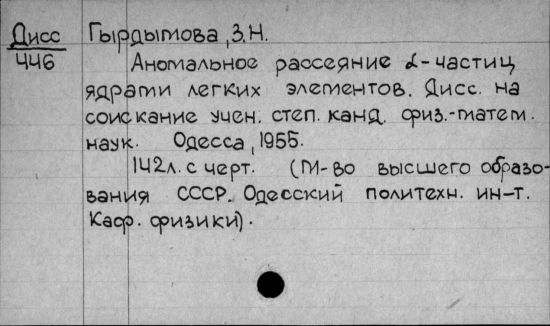 Дисс Гырдымова, З.Н.
446
Аномальное рассеяние α-частиц
ядрами легких элементов. Дисс. на
соискание учен. степ. канд. физ.-матем.
наук. Одесса, 1955.
142л. с черт. (М-во высшего образо-
вания СССР. Одесский политехн. ин-т.
Каф. физики).